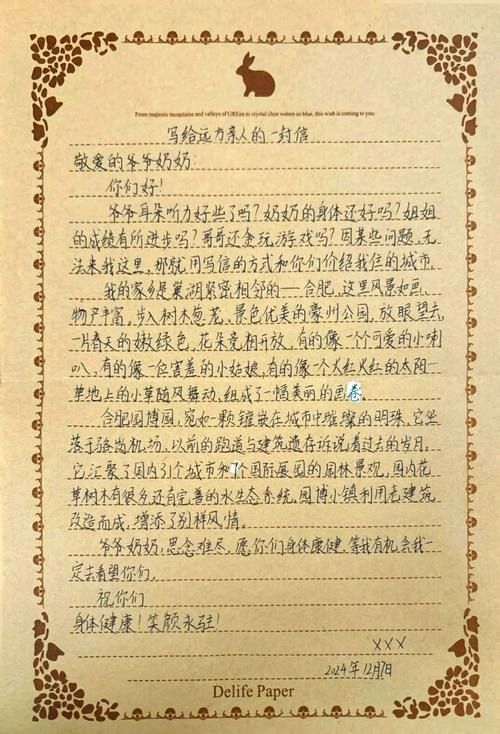 From majestic mountains and valleys of GREen to crystal clear waters so blue, this wish is coming to you.
写给远方亲人的一封信
敬爱的爷爷奶奶:
你们好!
爷爷耳朵听力好些了吗?奶奶的身体还好吗?姐姐
的成绩有所进步吗?哥哥还贪玩游戏吗?因某些问题,无
法来我这里,那就用写信的方式和你们介绍我住的城市。
我的家乡是巢湖紧密相邻的一合肥,这里风景如画、
物产丰富。步入树木葱茏、景色优美的豪州公园,放眼望去
一片春天的嫩绿色,花朵竞相开放,有的像一个可爱的小喇
叭,有的像一位害羞的小姑娘,有的像一个火红火红的太阳…
草地上的小草随风舞动,组成了一幅美丽的画卷。
合肥园博园,宛如一颗镶嵌在城市中璀璨的明珠,它坐
落于骆岗机场,以前的跑道与建筑遗存诉说着过去的岁月,
它汇聚了国内31个城市和7个国际展园的园林景观,园内花
草树木有很多还有完善的水生态系统。园博小镇利用老建筑
改造而成,增添了别样风情。
爷爷奶奶,思念难尽,愿你们身体康健,等我有机会我一
定去看望你们。
祝你们
身体健康!笑颜永驻!
XXX
2024年12月7日
Delife Paper